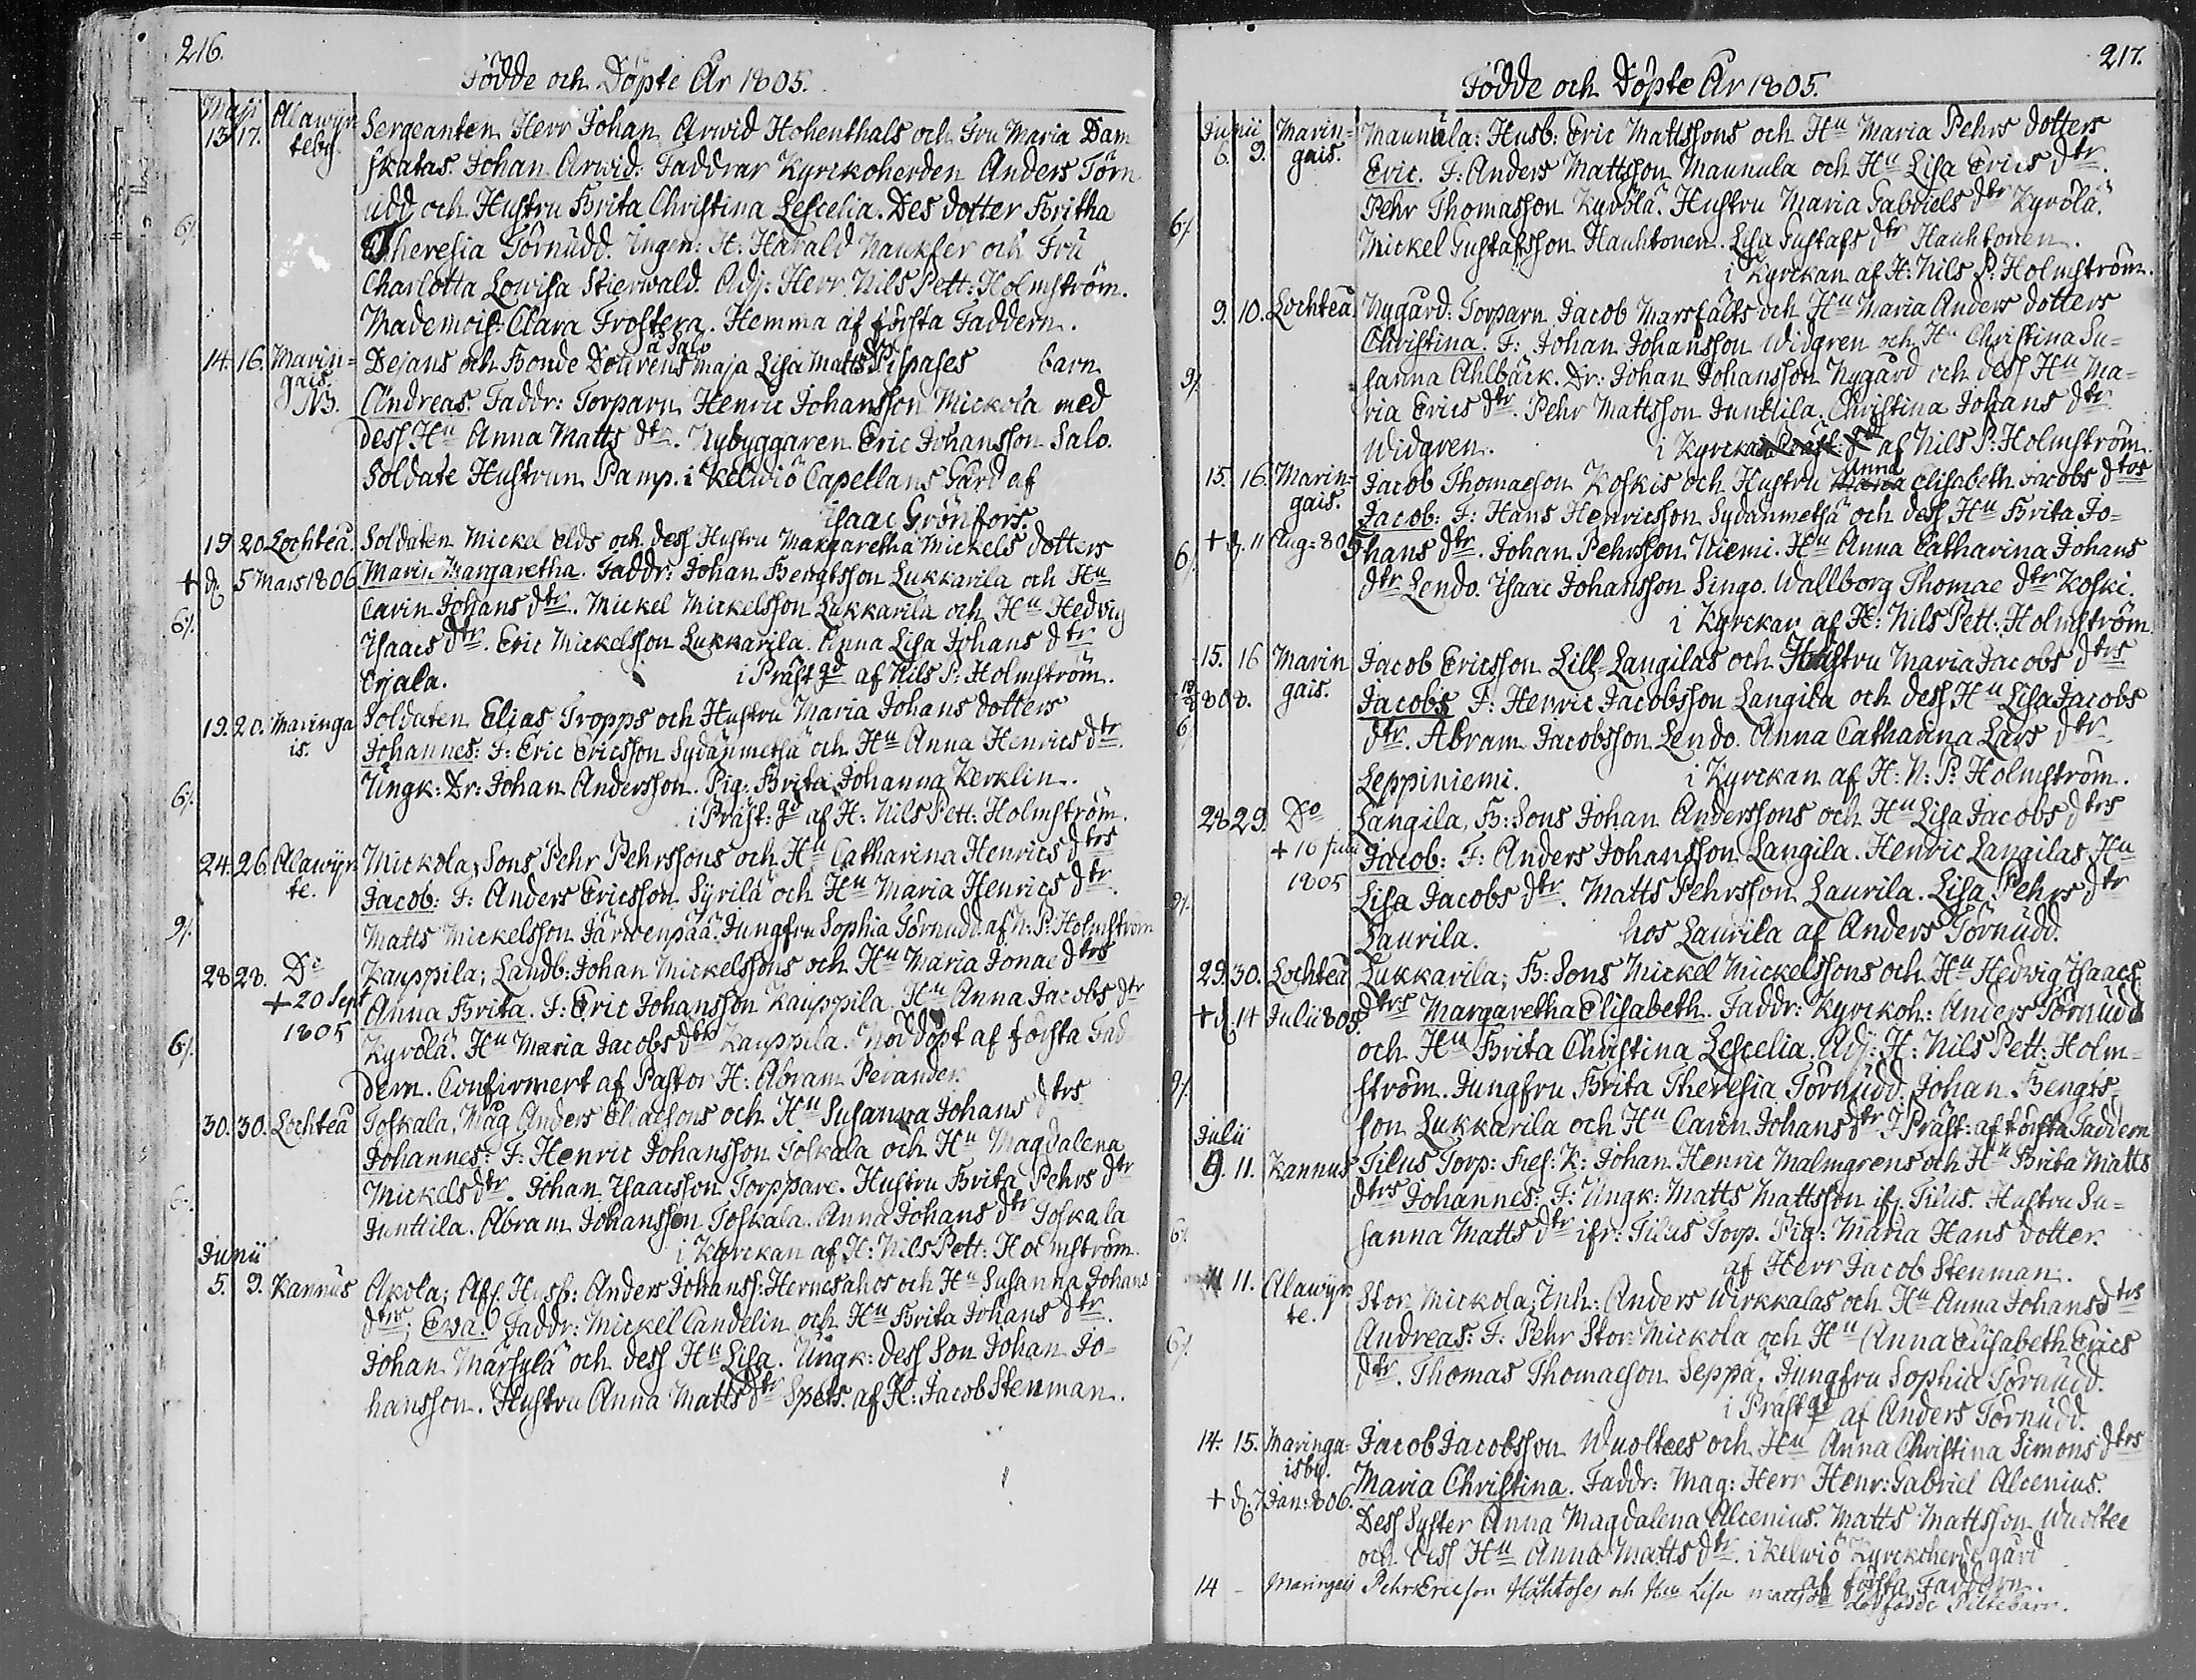 216.
Födde och Döpte År 1805.
Maji
13 17. Alawyr Sergeanten Herr Johan Arwid Hohenthals och Fru Maria Dam
teby. skatas. Johan Arwid: Faddrar Kyrckoherden Anders Törn
udd och Hustru Brita Christina Lescelia. Des dotter Britha
6/. Theresia Törnudd. Ingen: H: Harald Naukler och Fru
Charlotta Lowisa Stierwald. Adj: Herr Nils Pett: Holmström.
Mademois: Clara Frostera. Hemma af första Faddern.
å Salo
14. 16. Marin= Dejans och Bonde Maja Lisa Matts barn
gais.
NB. Andreas: Faddr: Torparn Henric Johansson Mickola med
dess Hu Anna Matts dtr. Nybyggaren Eric Johansson Salo.
Soldate Hustrun Pamp. i Kelwiö Capellans Gård af
Isaac Grönfors.
19 20. Lochteå. Soldaten Mickel Elds och dess Hustru Margaretha Mickels dotters
† d. 5 Mars 1806 Maria Margaretha. Faddr: Johan Bengtsson Lukkarila och Hu
6/. Carin Johans dtr. Mickel Mickelsson Lukkarila och Hu Hedvig
Isaacs dtr. Eric Mickelsson Lukkarila. Anna Lisa Johans dtr
Orjala. i Präst gd af Nils P: Holmström.
19. 20. Maringa Soldaten Elias Tropps och Hustru Maria Johans dotters
is. Johannes: F: Eric Ericsson Sydänmetsä och Hu Anna Henrics dtr.
6/. Ungk: Dr: Johan Andersson. Pig: Brita Johanna Kerklin.
i Präst: gd af H: Nils Pett: Holmström.
24. 26. Alawyr Mickola; Sons Pehr Pehrssons och Hu Catharina Henrics dtrs
te. Jacob: F: Anders Ericsson Syrilä och Hu Maria Henrics dtr.
9/. Matts Mickelsson Järwenpää. Jungfru Sophia Törnudd. af N: P: Holmström
28 28. Do Kauppila; Landb: Johan Mickelssons och Hu Maria Jonae dtrs
† 20 Sept Anna Brita. F: Eric Johansson Kauppila. Hu Anna Jacobs dtr
1805
6/. Kyrölä. Hu Maria Jacobs dtr Kauppila. Nöddöpt af första Fad
dern. Confirmert af Pastor H: Abram Perander.
30. 30. Lochteå Toskala, Måg Anders Eliaesons och Hu Susanna Johans dtrs
Johannes: F: Henric Johansson Toskala och Hu Magdalena
6/. Mickels dtr. Johan Isaacsson Torppare. Hustru Brita Pehrs dtr
Junttila. Abram Johansson Toskala. Anna Johans dtr Toskala
i Kyrckan af H: Nils Pett: Holmström.
Junii
5. 9. Kannus Akola; Afs. Husb: Anders Johanss: Hernesahos och Hu Susanna Johans
dtrs. Eva. Faddr: Mickel Candelin och Hu Brita Johans dtr.
Johan Märsylä och dess Hu Lisa. Ungk: dess Son Johan Jo=
hansson. Hustru Anna Matts dtr Spets. af H: Jacob Stenman.
217.
Födde och Döpte År 1805.
Junii
6. 9. Marin= Maunula: Husb: Eric Mattssons och Hu Maria Pehrs dotters
gais. Eric. F: Anders Mattsson Maunula och Hu Lisa Erics dtr.
Pehr Thomasson Kyrölä. Hustru Maria Gabriels dtr Kyrölä.
6/. Mickel Gustafsson Hauhtonen. Lisa Gustafs dtr Hauhtonen.
i Kyrckan af H: Nils P: Holmström.
9. 10. Lochteå Nygård: Torparn Jacob Marsfälts och Hu Maria Anders dotters
Christina. F: Johan Johansson Widgren och Hu Christina Su=
9/. sanna Ahlbäck. Dr: Johan Johansson Nygård och dess Hu Ma=
ria Erics dtr. Pehr Mattsson Junttila. Christina Johans dtr
Widgren. i Kyrckan af Nils P: Holmström.
15. 16. Marin= Jacob Thomaeson Koskis och Hustru Anna Elisabeth Jacobs dtrs
gais. Jacob: F: Hans Henricsson Sydänmetsä och dess Hu Brita Jo=
† d. 11 Aug: 805
6/. hans dtr. Johan Pehrsson Niemi. Hu Anna Catharina Johans
dtr Lendo. Isaac Johansson Singo. Wallborg Thomae dtr Koski.
i Kyrckan af H: Nils Pett: Holmström
15. 16 Marin Jacob Ericsson Lill-Langilas och Hustru Maria Jacobs dtrs
808. gais. Jacobs F: Henric Jacobsson Langila och dess Hu Lisa Jacobs
6/ dtr. Abram Jacobsson Lendo. Anna Catharina Lars dtr
Leppiniemi. i Kyrckan af H: N: P: Holmström.
28 29. Do Langila, B: Sons Johan Anderssons och Hu Lisa Jacobs dtrs
† 16 Julii Jacob: F: Anders Johansson Langila. Henric Langilas Hu
1805
9/. Lisa Jacobs dtr. Matts Pehrsson Laurila. Lisa Pehrs dtr
Laurila. hos Laurila af Anders Törnudd.
29. 30. Lochteå Lukkarila; B: Sons Mickel Mickelssons och Hu Hedvig Isaacs
† d. 14 Julii 805. dtrs Margaretha Elisabeth. Faddr: Kyrckoh: Anders Törnudd
och Hu Brita Christina Lescelia. Adj: H: Nils Pett: Holm=
9/. ström. Jungfru Brita Theresia Törnudd. Johan Bengts=
son Lukkarila och Hu Carin Johans dtr I Präst: af första Faddern
Julii
9. 11. Kannus Tilus Torp: Fref: K: Johan Henric Malmgrens och Hu Brita Matts
dtrs Johannes: F: Ungk: Matts Mattsson ifr. Tilus. Hustru Su=
6/. sanna Matts dtr ifr: Tilus Torp. Pig: Maria Hans dotter.
af Herr Jacob Stenman:.
11. Alawyr Stor Mickola; Inh: Anders Wirkkalas och Hu Anna Johans dtrs
te.
6/. Andreas: F: Pehr Stor Mickola och Hu Anna Elisabeth Erics
dtr. Thomas Thomaeson Seppä. Jungfru Sophia Törnudd.
i Präst gd af Anders Törnudd.
14. 15. Maringa= Jacob Jacobsson Wuoltees och Hu Anna Christina Simons dtrs
isby. Maria Christina. Faddr: Mag: Herr Henr: Gabriel Alcenius.
† d. 7 Jan: 806. Dess Syster Anna Magdalena Alcenius. Matts Mattsson Wuoltee
och dess Hu Anna Matts dtr. i Kelwiö Kyrckoherde gård
af första Faddern.
14 - Maringais Pehr Ericson och Hu Lisa Matts dr dödfödde Piltebarn.